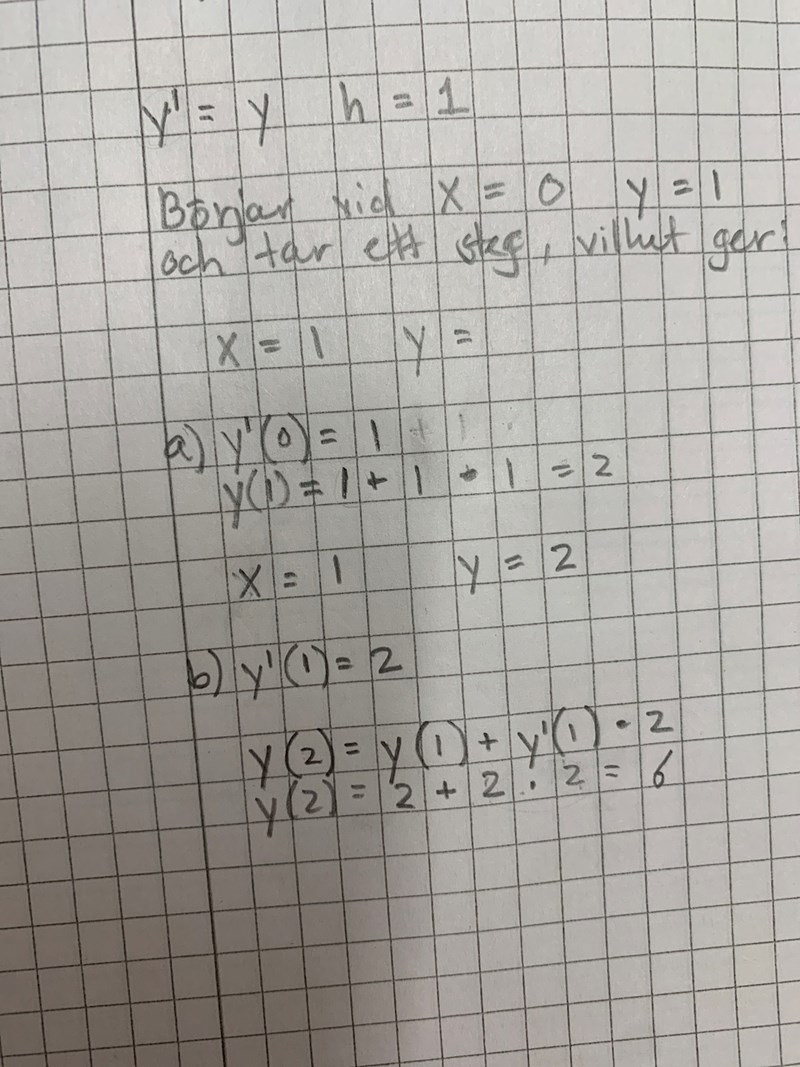 y' = y h = 1
Börjar vid x = 0 y = 1
och tar ett steg, vilket ger:
x = 1 y =
a) y'(0) = 1 + 1
y(1) = 1 + 1 · 1 = 2
x = 1 y = 2
b) y'(1) = 2
y(2) = y(1) + y'(1) · 2
y(2) = 2 + 2 · 2 = 6